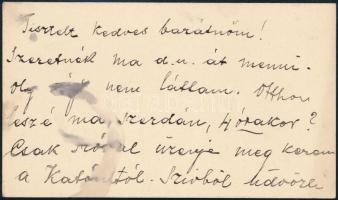 Tisztelt kedves barátnőm!
Szeretnék ma d.u. át menni.
Oly rég nem láttam. Otthon
lesz é ma, szerdán, 4 órakor?
Csak szóval üzenje meg kérem
a Katónktól. Szívből üdvözli